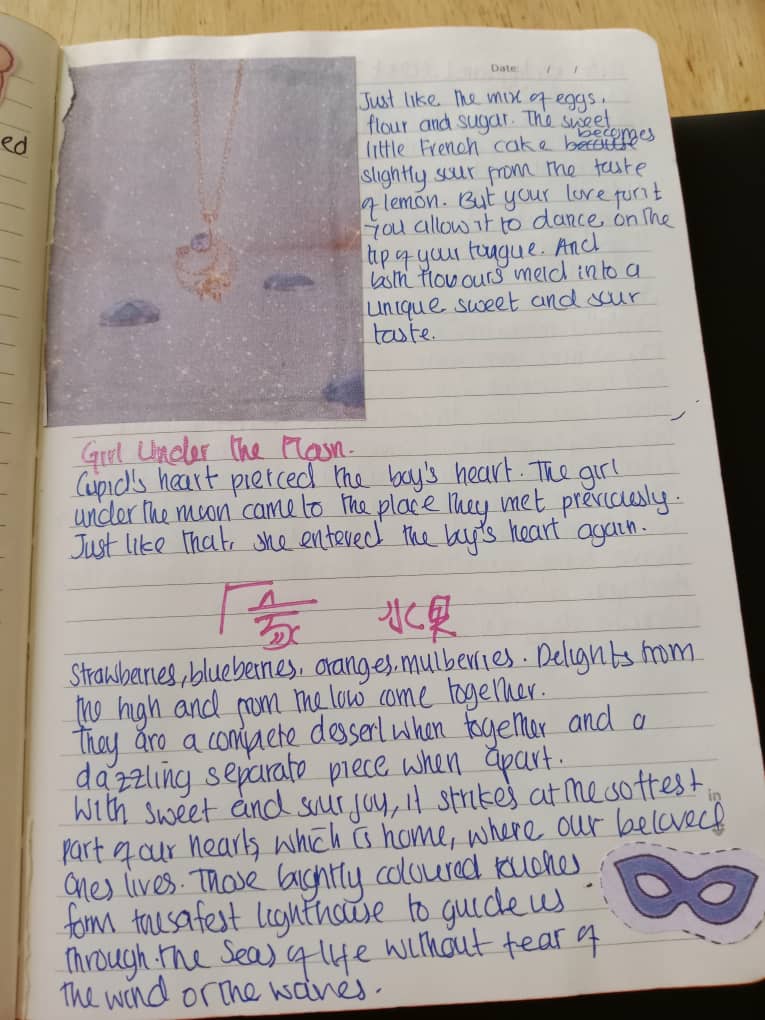 ed
Date: / /
Just like the mix of eggs,
flour and sugar. The sweet
little French cake becomes
slightly sour from the taste
of lemon. But your love for it
you allow it to dance on the
tip of your tongue. And
both flavours meld into a
unique sweet and sour
taste.
Girl Under the Moon.
Cupid's heart pierced the boy's heart. The girl
under the moon came to the place they met previously.
Just like that, she entered the boy's heart again.
水果
Strawberries, blueberries, oranges, mulberries. Delights from
the high and from the low come together.
They are a complete dessert when together and a
dazzling separate piece when apart.
With sweet and sour joy, it strikes at the softest
part of our hearts, which is home, where our beloved
ones lives. Those brightly coloured touches
form the safest lighthouse to guide us
through the seas of life without fear of
the wind or the waves.